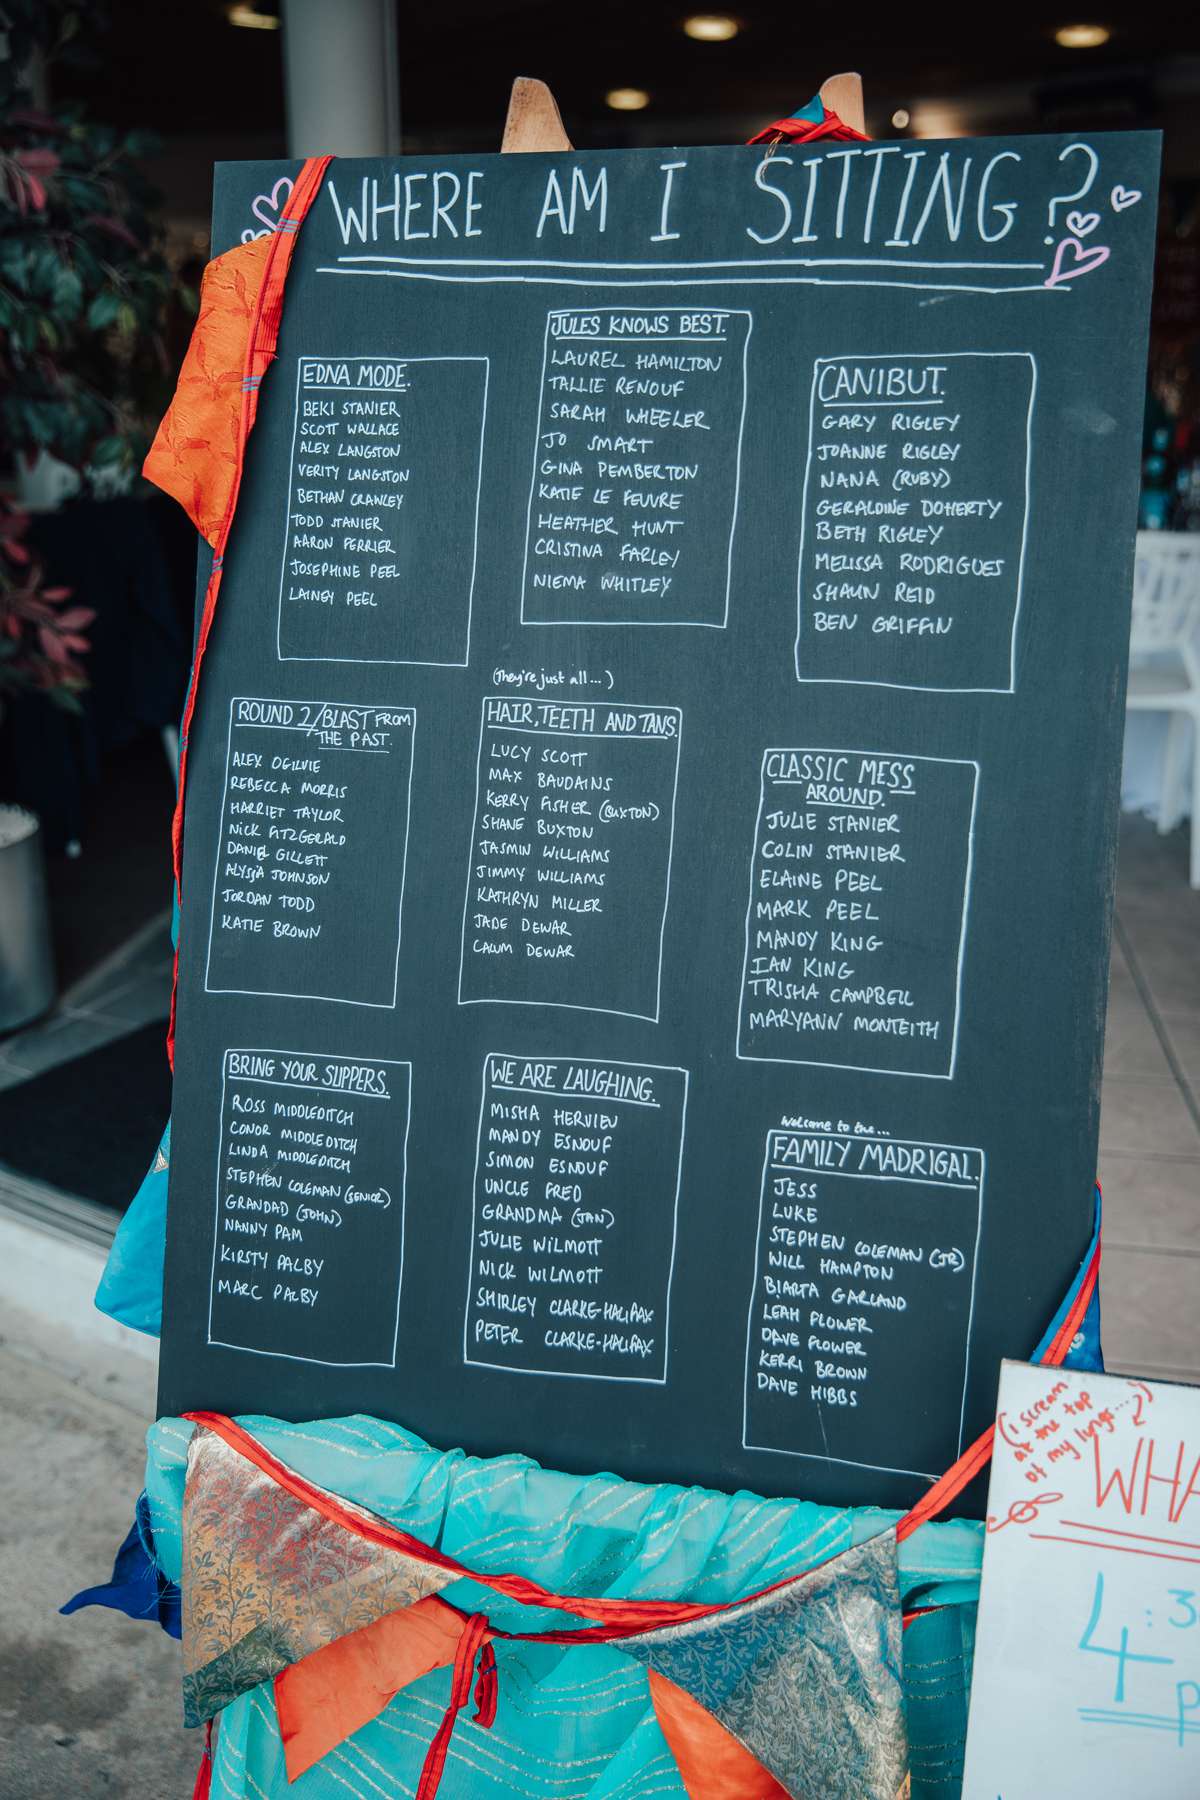 WHERE AM I SITTING?
EDNA MODE.
BEKI STANIER
SCOTT WALLACE
ALEX LANGSTON
VERITY LANGSTON
BETHAN CRAWLEY
TODD STANIER
AARON FERRIER
JOSEPHINE PEEL
LAINEY PEEL
JULES KNOWS BEST.
LAUREL HAMILTON
TALLIE RENOUF
SARAH WHEELER
JO SMART
GINA PEMBERTON
KATIE LE FEUVRE
HEATHER HUNT
CRISTINA FARLEY
NIEMA WHITLEY
CANIBUT.
GARY RIGLEY
JOANNE RIGLEY
NANA (RUBY)
GERALDINE DOHERTY
BETH RIGLEY
MELISSA RODRIGUES
SHAUN REID
BEN GRIFFIN
ROUND 2/BLAST FROM
THE PAST.
ALEX OGILVIE
REBECCA MORRIS
HARRIET TAYLOR
NICK FITZGERALD
DANIEL GILLETT
ALYSSIA JOHNSON
JORDAN TODD
KATIE BROWN
(They're just all...)
HAIR, TEETH AND TANS.
LUCY SCOTT
MAX BAUDAINS
KERRY FISHER (BUXTON)
SHANE BUXTON
JASMIN WILLIAMS
JIMMY WILLIAMS
KATHRYN MILLER
JADE DEWAR
CALUM DEWAR
CLASSIC MESS
AROUND.
JULIE STANIER
COLIN STANIER
ELAINE PEEL
MARK PEEL
MANDY KING
IAN KING
TRISHA CAMPBELL
MARYANN MONTEITH
BRING YOUR SLIPPERS.
ROSS MIDDLEDITCH
CONOR MIDDLEDITCH
LINDA MIDDLEDITCH
STEPHEN COLEMAN (SENIOR)
GRANDAD (JOHN)
NANNY PAM
KIRSTY PALBY
MARC PALBY
WE ARE LAUGHING.
MISHA HERVIEU
MANDY ESNOUF
SIMON ESNOUF
UNCLE FRED
GRANDMA (JAN)
JULIE WILMOTT
NICK WILMOTT
SHIRLEY CLARKE-HALIFAX
PETER CLARKE-HALIFAX
Welcome to the...
FAMILY MADRIGAL.
JESS
LUKE
STEPHEN COLEMAN (JR)
WILL HAMPTON
BIARTA GARLAND
LEAH FLOWER
DAVE FLOWER
KERRI BROWN
DAVE HIBBS
(I scream
at the top
of my lungs...)
WHA
4:3
P